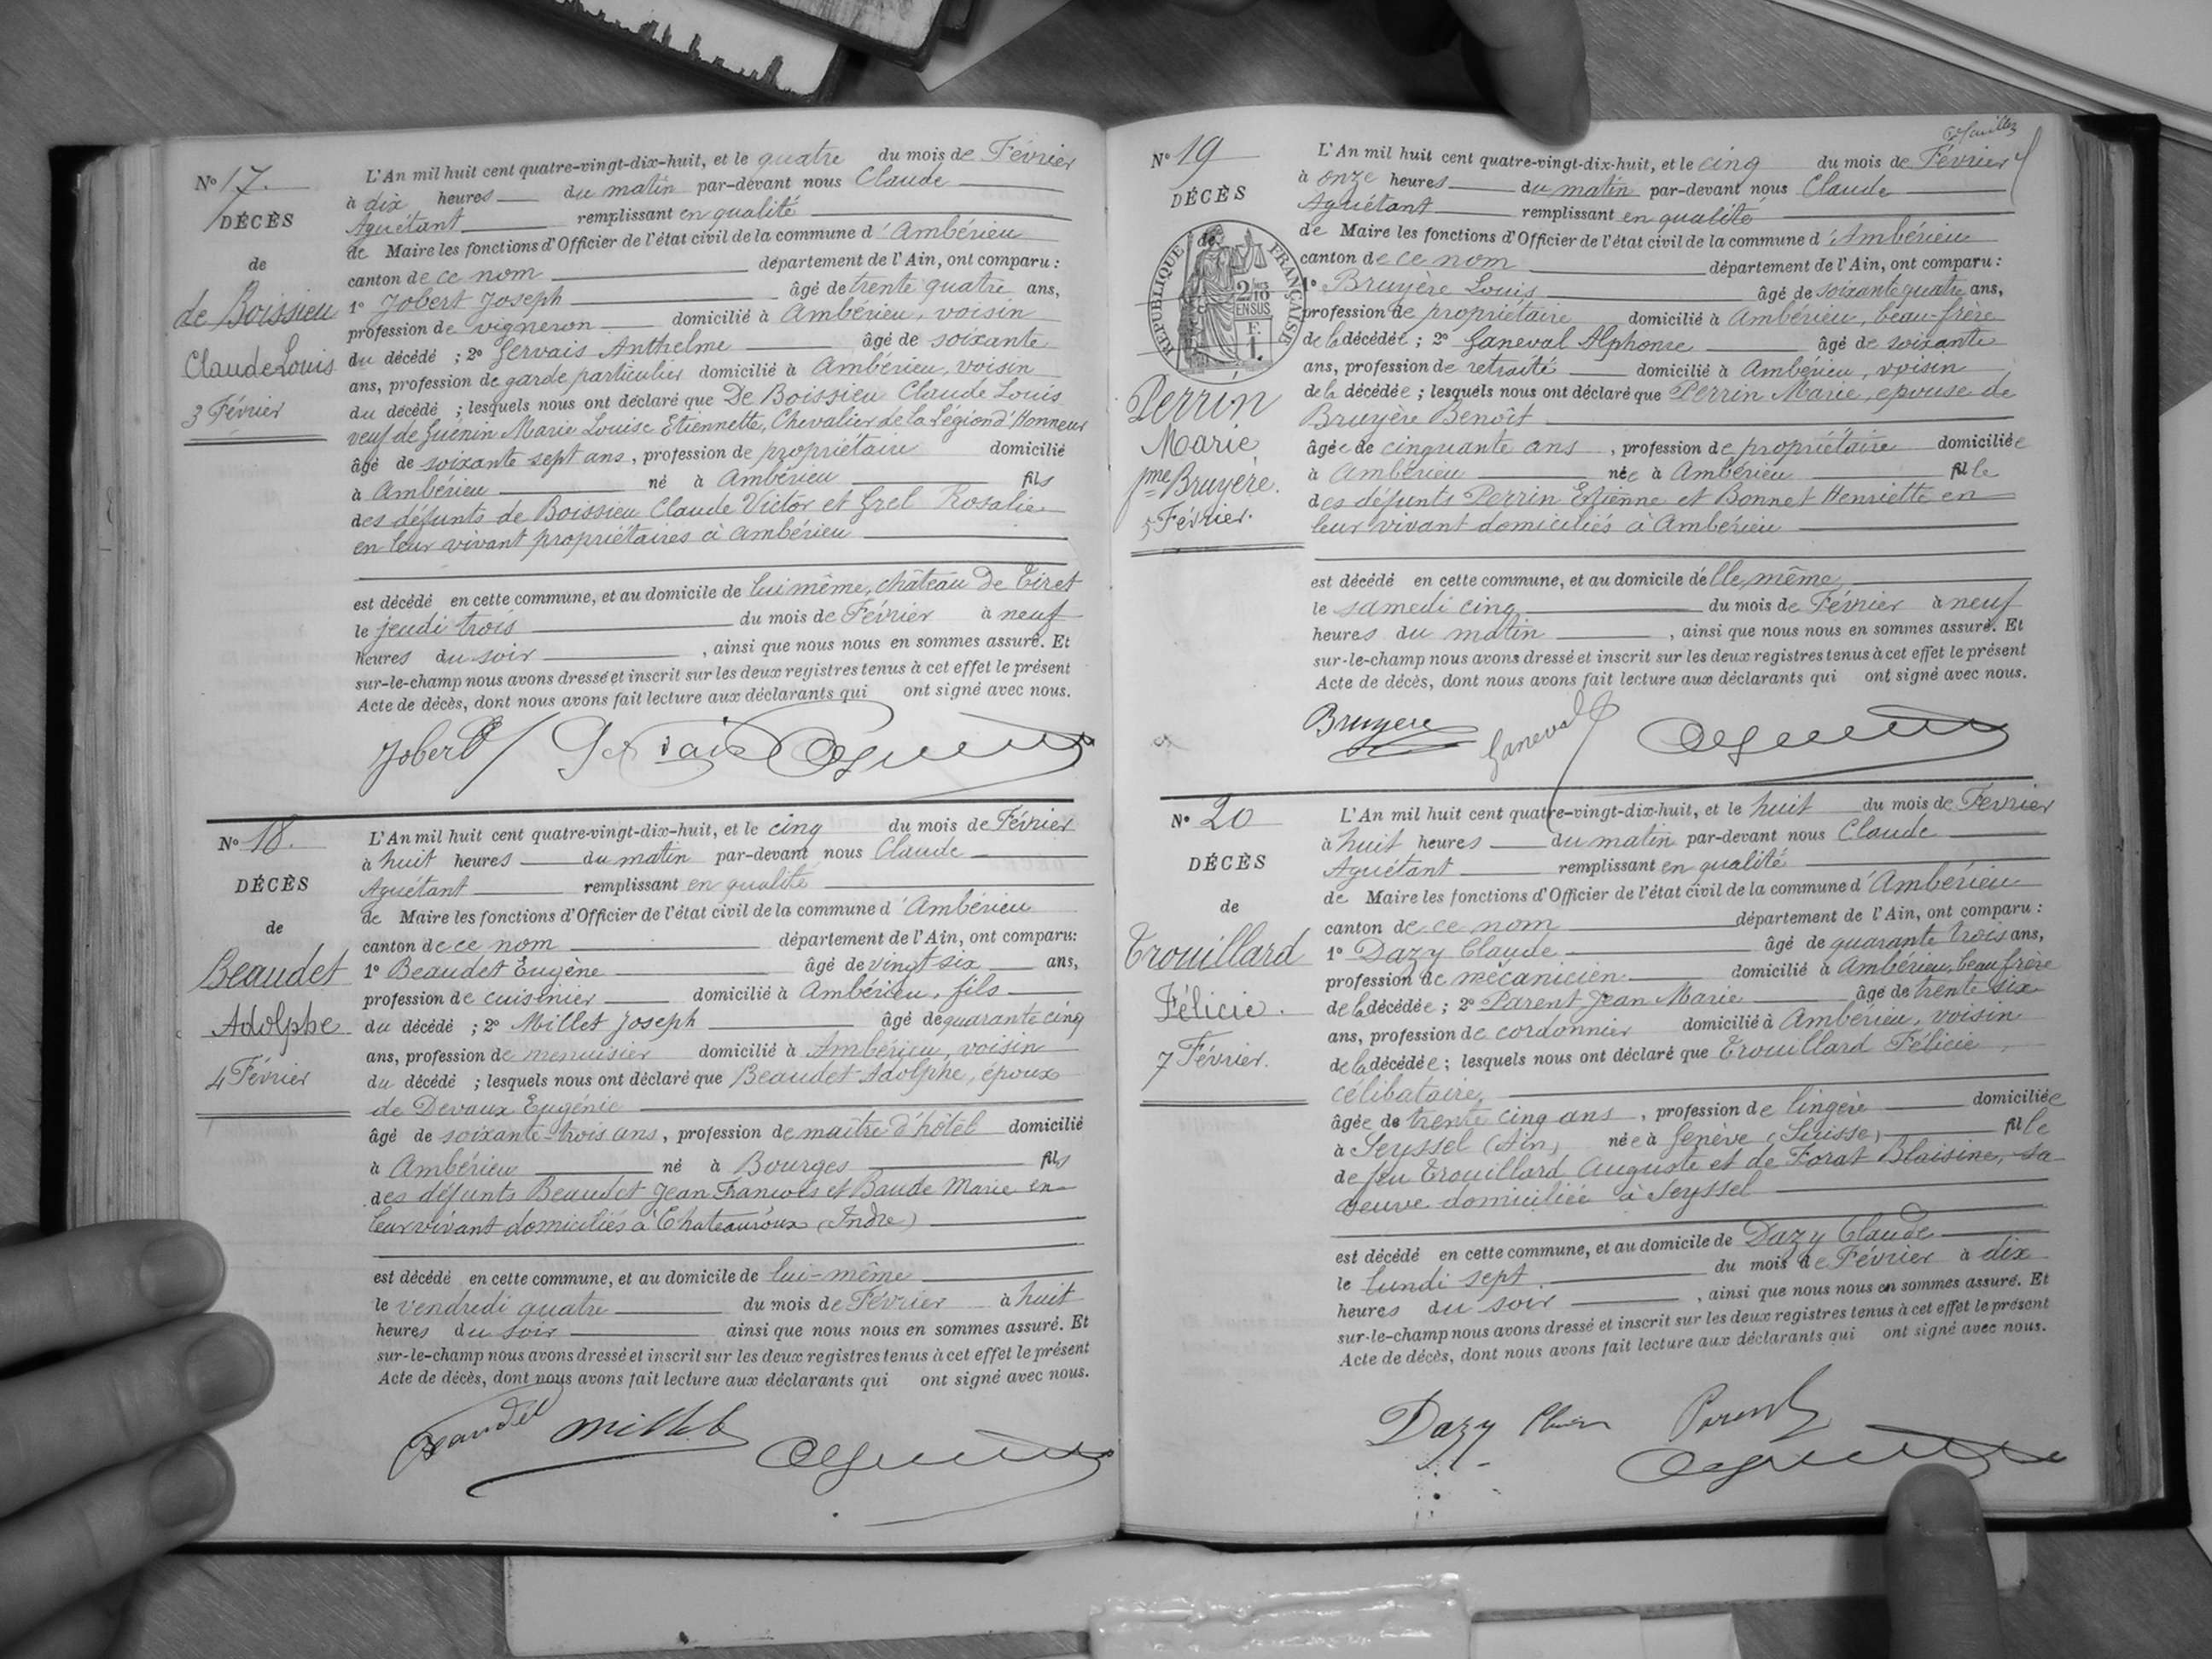 N° 17.
DÉCÈS
de
de Boissieu
Claude Louis
3 Février
L'An mil huit cent quatre-vingt-dix-huit, et le quatre du mois de Février
à dix heures du matin par-devant nous Claude
Aguétant remplissant en qualité
de Maire les fonctions d'Officier de l'état civil de la commune d'Ambérieu
canton de ce nom département de l'Ain, ont comparu :
1° Jobert Joseph âgé de trente quatre ans,
profession de vigneron domicilié à Ambérieu, voisin
du décédé ; 2° Gervais Anthelme âgé de soixante
ans, profession de garde particulier domicilié à Ambérieu, voisin
du décédé ; lesquels nous ont déclaré que De Boissieu Claude Louis
veuf de Guénin Marie Louise Etiennette, Chevalier de la Légion d'Honneur
âgé de soixante sept ans, profession de propriétaire domicilié
à Ambérieu né à Ambérieu fils
des défunts de Boissieu Claude Victor et Grel Rosalie
en leur vivant propriétaires à Ambérieu
est décédé en cette commune, et au domicile de lui même, château de Tiret
le jeudi trois du mois de Février à neuf
heures du soir , ainsi que nous nous en sommes assuré. Et
sur-le-champ nous avons dressé et inscrit sur les deux registres tenus à cet effet le présent
Acte de décès, dont nous avons fait lecture aux déclarants qui ont signé avec nous.
Jobert Gervais
N° 18.
DÉCÈS
de
Beaudet
Adolphe
4 Février
L'An mil huit cent quatre-vingt-dix-huit, et le cinq du mois de Février
à huit heures du matin par-devant nous Claude
Aguétant remplissant en qualité
de Maire les fonctions d'Officier de l'état civil de la commune d'Ambérieu
canton de ce nom département de l'Ain, ont comparu:
1° Beaudet Eugène âgé de vingt six ans,
profession de cuisinier domicilié à Ambérieu, fils
du décédé ; 2° Millet Joseph âgé de quarante cinq
ans, profession de menuisier domicilié à Ambérieu, voisin
du décédé ; lesquels nous ont déclaré que Beaudet Adolphe, époux
de Devaux Eugénie
âgé de soixante-trois ans, profession de maître d'hôtel domicilié
à Ambérieu né à Bourges fils
des défunts Beaudet Jean François et Baude Marie en
leur vivant domiciliés à Chateauroux (Indre)
est décédé en cette commune, et au domicile de lui-même
le vendredi quatre du mois de Février à huit
heures du soir ainsi que nous nous en sommes assuré. Et
sur-le-champ nous avons dressé et inscrit sur les deux registres tenus à cet effet le présent
Acte de décès, dont nous avons fait lecture aux déclarants qui ont signé avec nous.
Beaudet Millet
N° 19
DÉCÈS
de
RÉPUBLIQUE FRANÇAISE
2/10 EN SUS
Perrin
Marie
fme Bruyère.
5 Février.
L'An mil huit cent quatre-vingt-dix-huit, et le cinq du mois de Février
à onze heures du matin par-devant nous Claude
Aguétant remplissant en qualité
de Maire les fonctions d'Officier de l'état civil de la commune d'Ambérieu
canton de ce nom département de l'Ain, ont comparu :
1° Bruyère Louis âgé de soixante quatre ans,
profession de propriétaire domicilié à Ambérieu, beau-frère
de la décédée ; 2° Ganeval Alphonse âgé de soixante
ans, profession de retraité domicilié à Ambérieu, voisin
de la décédée ; lesquels nous ont déclaré que Perrin Marie, épouse de
Bruyère Benoît
âgée de cinquante ans , profession de propriétaire domiciliée
à Ambérieu née à Ambérieu fille
des défunts Perrin Etienne et Bonnet Henriette en
leur vivant domiciliés à Ambérieu
est décédé en cette commune, et au domicile d'elle même,
le samedi cinq du mois de Février à neuf
heures du matin , ainsi que nous nous en sommes assuré. Et
sur-le-champ nous avons dressé et inscrit sur les deux registres tenus à cet effet le présent
Acte de décès, dont nous avons fait lecture aux déclarants qui ont signé avec nous.
Bruyere Ganeval
N° 20
DÉCÈS
de
Trouillard
Félicie.
7 Février.
L'An mil huit cent quatre-vingt-dix-huit, et le huit du mois de Février
à huit heures du matin par-devant nous Claude
Aguétant remplissant en qualité
de Maire les fonctions d'Officier de l'état civil de la commune d'Ambérieu
canton de ce nom département de l'Ain, ont comparu :
1° Dazy Claude âgé de quarante trois ans,
profession de mécanicien domicilié à Ambérieu, beau frère
de la décédée ; 2° Parent Jean Marie âgé de trente six
ans, profession de cordonnier domicilié à Ambérieu, voisin
de la décédée ; lesquels nous ont déclaré que Trouillard Félicie,
célibataire,
âgée de trente cinq ans , profession de lingère domiciliée
à Seyssel (Ain) née à Genève (Suisse) fille
de feu Trouillard Auguste et de Forat Blaisine, sa
veuve domiciliée à Seyssel
est décédé en cette commune, et au domicile de Dazy Claude
le lundi sept du mois de Février à dix
heures du soir , ainsi que nous nous en sommes assuré. Et
sur-le-champ nous avons dressé et inscrit sur les deux registres tenus à cet effet le présent
Acte de décès, dont nous avons fait lecture aux déclarants qui ont signé avec nous.
Dazy Parent